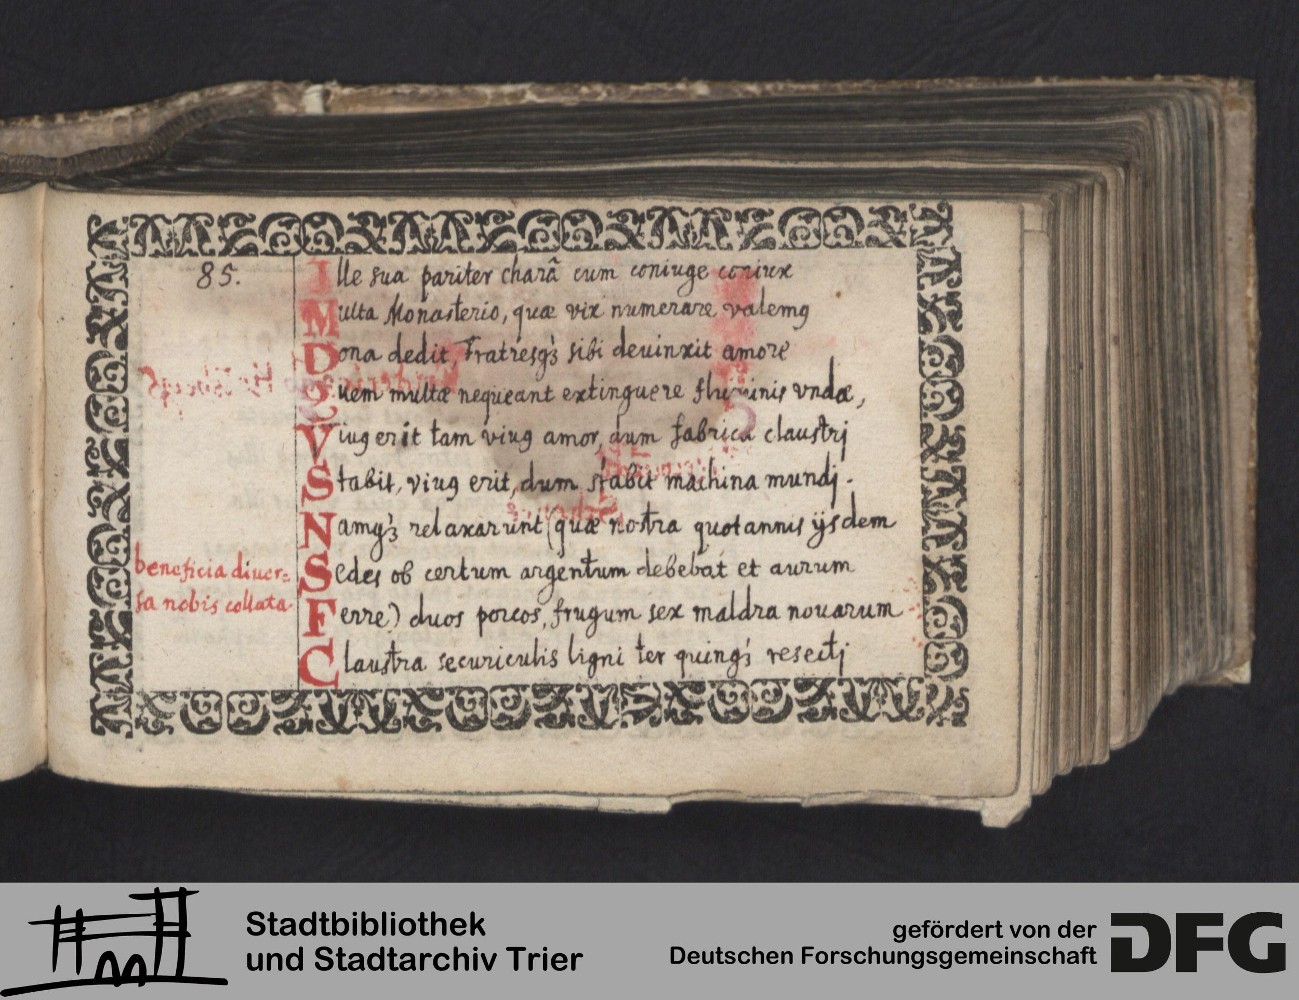 85.
Ille sua pariter charã cum coniuge coniux
Multa Monasterio, quæ vix numerare valemꝰ
Dona dedit, Fratresqꝫ sibi deuinxit amore
Quem multæ nequeant extinguere fluminis vndæ,
Viuꝰ erit tam viuꝰ amor, dum fabrica claustrj
Stabit, viuꝰ erit, dum stabit machina mundj.
Namqꝫ relaxarunt (quæ nostra quotannis ijsdem
Sedes ob certum argentum debebat et aurum
beneficia diuer=
sa nobis collata.
Ferre) duos porcos, frugum sex maldra nouarum
Claustra securiculis ligni ter quinqꝫ resectj
Stadtbibliothek
und Stadtarchiv Trier
gefördert von der
Deutschen Forschungsgemeinschaft
DFG